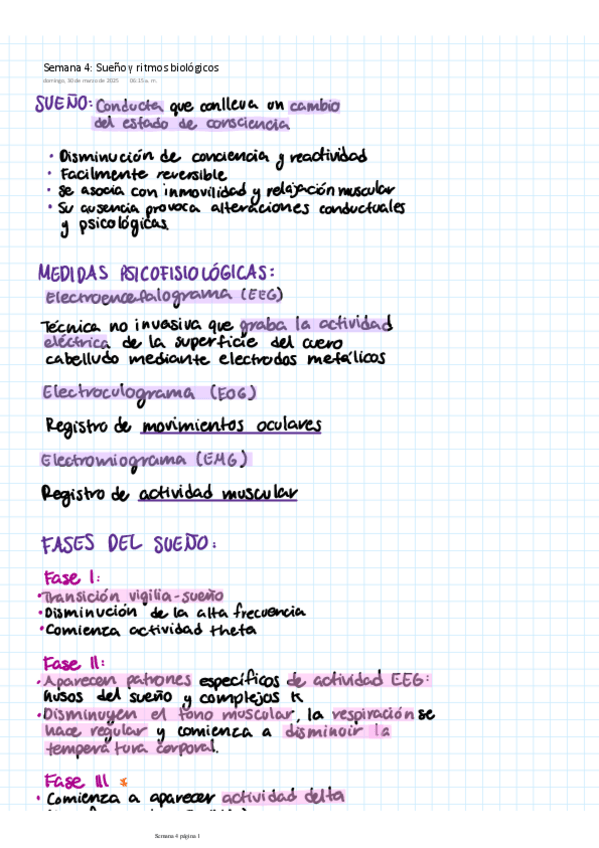 Semana 4: Sueño y ritmos biológicos
domingo, 30 de marzo de 2025 06:15 a. m.
SUEÑO: Conducta que conlleva un cambio
del estado de consciencia
• Disminución de conciencia y reactividad
• Facilmente reversible
• Se asocia con inmovilidad y relajación muscular
• Su ausencia provoca alteraciones conductuales
y psicológicas.
MEDIDAS PSICOFISIOLÓGICAS:
Electroencefalograma (EEG)
Técnica no invasiva que graba la actividad
eléctrica de la superficie del cuero
cabelludo mediante electrodos metálicos
Electroculograma (EOG)
Registro de movimientos oculares
Electromiograma (EMG)
Registro de actividad muscular
FASES DEL SUEÑO:
Fase I:
• Transición vigilia-sueño
• Disminución de la alta frecuencia
• Comienza actividad theta
Fase II:
• Aparecen patrones específicos de actividad EEG:
husos del sueño y complejos K
• Disminuyen el tono muscular, la respiración se
hace regular y comienza a disminoir la
temperatura corporal.
Fase III *
• Comienza a aparecer actividad delta
Semana 4 página 1